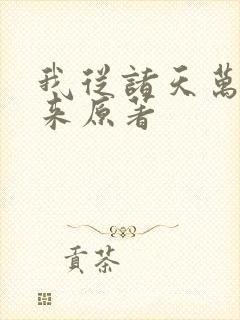 我從諸天萬
來原著
貢茶